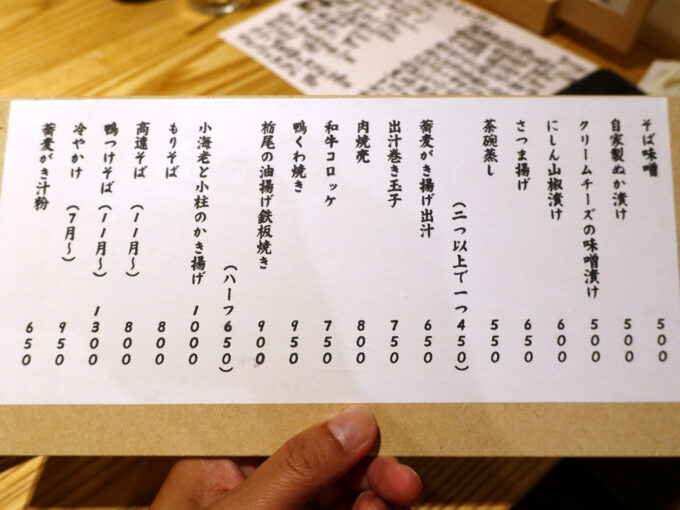 そば味噌 500
自家製ぬか漬け 500
クリームチーズの味噌漬け 500
にしん山椒漬け 600
さつま揚げ 650
茶碗蒸し 550
(二つ以上で一つ450)
蕎麦がき揚げ出汁 650
出汁巻き玉子 750
肉焼売 800
和牛コロッケ 750
鴨くわ焼き 950
栃尾の油揚げ鉄板焼き 900
(ハーフ650)
小海老と小柱のかき揚げ 1000
もりそば 800
高遠そば (11月~) 800
鴨つけそば (11月~) 1300
冷やかけ (7月~) 950
蕎麦がき汁粉 650